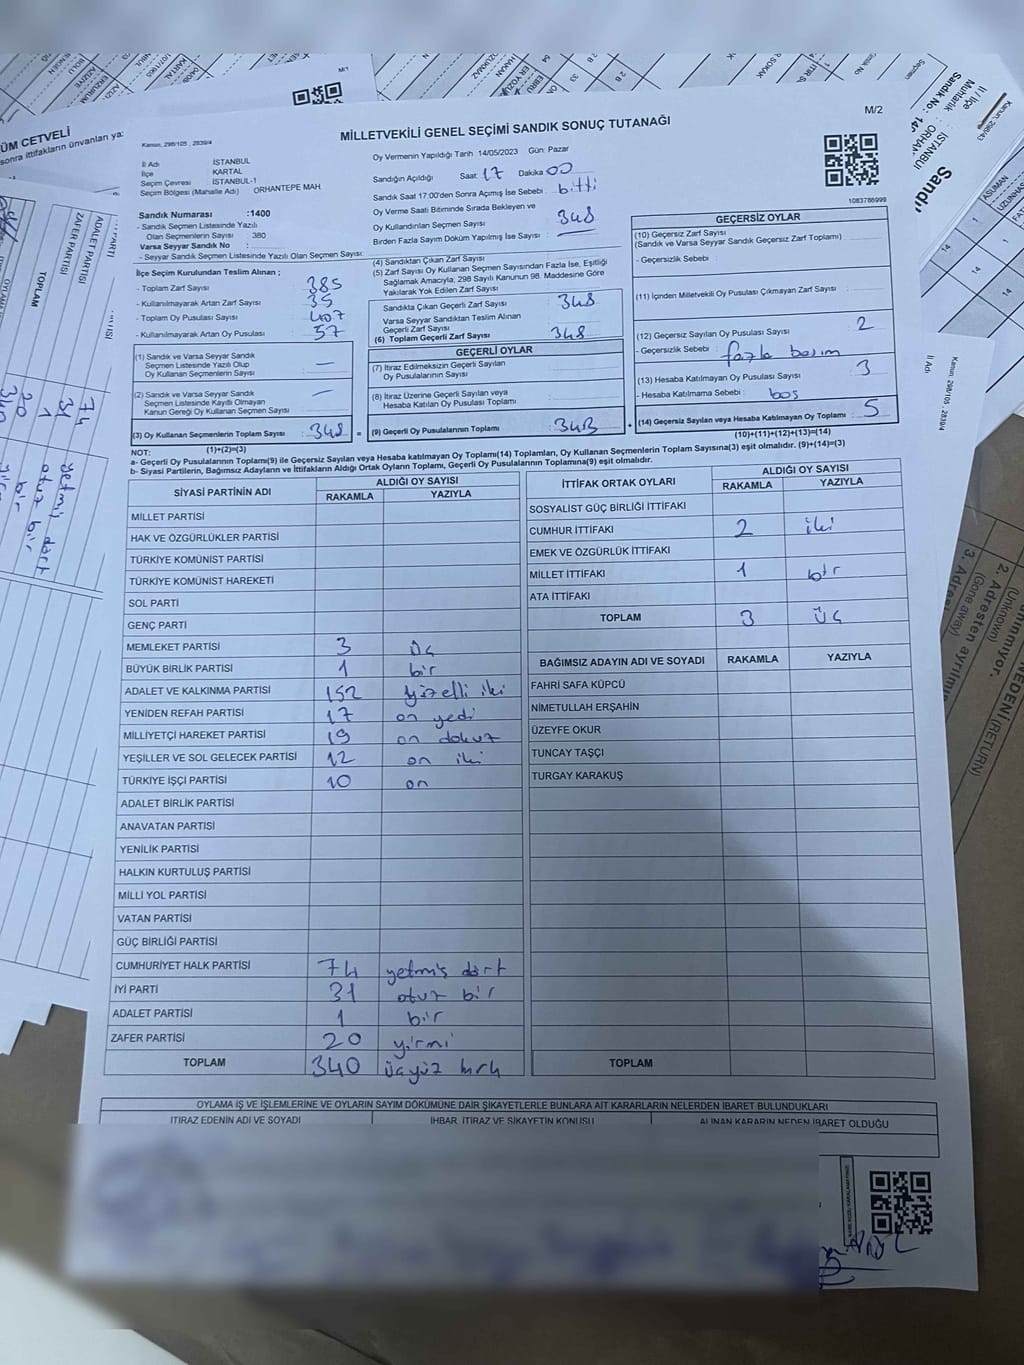 M/2
MİLLETVEKİLİ GENEL SEÇİMİ SANDIK SONUÇ TUTANAĞI
Kanun, 298/105 , 2839/4
İl Adı İSTANBUL
İlçe KARTAL
Seçim Çevresi İSTANBUL-1
Seçim Bölgesi (Mahalle Adı) ORHANTEPE MAH.
Sandık Numarası :1400
- Sandık Seçmen Listesinde Yazılı
Olan Seçmenlerin Sayısı : 380
Varsa Seyyar Sandık No :
- Seyyar Sandık Seçmen Listesinde Yazılı Olan Seçmen Sayısı:
İlçe Seçim Kurulundan Teslim Alınan ;
- Toplam Zarf Sayısı : 385
- Kullanılmayarak Artan Zarf Sayısı : 35
- Toplam Oy Pusulası Sayısı : 407
- Kullanılmayarak Artan Oy Pusulası : 57
(1) Sandık ve Varsa Seyyar Sandık
Seçmen Listesinde Yazılı Olup
Oy Kullanan Seçmenlerin Sayısı : —
(2) Sandık ve Varsa Seyyar Sandık
Seçmen Listesinde Kayıtlı Olmayan
Kanun Gereği Oy Kullanan Seçmen Sayısı : —
(3) Oy Kullanan Seçmenlerin Toplam Sayısı : 348 =
(1)+(2)=(3)
Oy Vermenin Yapıldığı Tarih 14/05/2023 Gün: Pazar
Sandığın Açıldığı Saat 17 Dakika 00
Sandık Saat 17:00'den Sonra Açılmış İse Sebebi : bitti
Oy Verme Saati Bitiminde Sırada Bekleyen ve
Oy Kullandırılan Seçmen Sayısı : 348
Birden Fazla Sayım Döküm Yapılmış İse Sayısı :
(4) Sandıktan Çıkan Zarf Sayısı
(5) Zarf Sayısı Oy Kullanan Seçmen Sayısından Fazla İse, Eşitliği
Sağlamak Amacıyla, 298 Sayılı Kanunun 98. Maddesine Göre
Yakılarak Yok Edilen Zarf Sayısı
Sandıkta Çıkan Geçerli Zarf Sayısı : 348
Varsa Seyyar Sandıktan Teslim Alınan
Geçerli Zarf Sayısı :
(6) Toplam Geçerli Zarf Sayısı : 348
GEÇERLİ OYLAR
(7) İtiraz Edilmeksizin Geçerli Sayılan
Oy Pusulalarının Sayısı :
(8) İtiraz Üzerine Geçerli Sayılan veya
Hesaba Katılan Oy Pusulası Toplamı :
(9) Geçerli Oy Pusulalarının Toplamı : 343 +
1083786999
GEÇERSİZ OYLAR
(10) Geçersiz Zarf Sayısı
(Sandık ve Varsa Seyyar Sandık Geçersiz Zarf Toplamı) :
- Geçersizlik Sebebi :
(11) İçinden Milletvekili Oy Pusulası Çıkmayan Zarf Sayısı :
(12) Geçersiz Sayılan Oy Pusulası Sayısı : 2
- Geçersizlik Sebebi : fazla basım
(13) Hesaba Katılmayan Oy Pusulası Sayısı : 3
- Hesaba Katılmama Sebebi : boş
(14) Geçersiz Sayılan veya Hesaba Katılmayan Oy Toplamı : 5
(10)+(11)+(12)+(13)=(14)
NOT:
a- Geçerli Oy Pusulalarının Toplamı(9) ile Geçersiz Sayılan veya Hesaba katılmayan Oy Toplamı(14) Toplamları, Oy Kullanan Seçmenlerin Toplam Sayısına(3) eşit olmalıdır. (9)+(14)=(3)
b- Siyasi Partilerin, Bağımsız Adayların ve İttifakların Aldığı Ortak Oyların Toplamı, Geçerli Oy Pusulalarının Toplamına(9) eşit olmalıdır.
SİYASİ PARTİNİN ADI ALDIĞI OY SAYISI
RAKAMLA YAZIYLA
MİLLET PARTİSİ
HAK VE ÖZGÜRLÜKLER PARTİSİ
TÜRKİYE KOMÜNİST PARTİSİ
TÜRKİYE KOMÜNİST HAREKETİ
SOL PARTİ
GENÇ PARTİ
MEMLEKET PARTİSİ 3 üç
BÜYÜK BİRLİK PARTİSİ 1 bir
ADALET VE KALKINMA PARTİSİ 152 yüzelli iki
YENİDEN REFAH PARTİSİ 17 on yedi
MİLLİYETÇİ HAREKET PARTİSİ 19 on dokuz
YEŞİLLER VE SOL GELECEK PARTİSİ 12 on iki
TÜRKİYE İŞÇİ PARTİSİ 10 on
ADALET BİRLİK PARTİSİ
ANAVATAN PARTİSİ
YENİLİK PARTİSİ
HALKIN KURTULUŞ PARTİSİ
MİLLİ YOL PARTİSİ
VATAN PARTİSİ
GÜÇ BİRLİĞİ PARTİSİ
CUMHURİYET HALK PARTİSİ 74 yetmiş dört
İYİ PARTİ 31 otuz bir
ADALET PARTİSİ 1 bir
ZAFER PARTİSİ 20 yirmi
TOPLAM 340 üçyüz kırk
İTTİFAK ORTAK OYLARI ALDIĞI OY SAYISI
RAKAMLA YAZIYLA
SOSYALİST GÜÇ BİRLİĞİ İTTİFAKI
CUMHUR İTTİFAKI 2 iki
EMEK VE ÖZGÜRLÜK İTTİFAKI
MİLLET İTTİFAKI 1 bir
ATA İTTİFAKI
TOPLAM 3 üç
BAĞIMSIZ ADAYIN ADI VE SOYADI RAKAMLA YAZIYLA
FAHRİ SAFA KÜPCÜ
NİMETULLAH ERŞAHİN
ÜZEYFE OKUR
TUNCAY TAŞÇI
TURGAY KARAKUŞ
TOPLAM
OYLAMA İŞ VE İŞLEMLERİNE VE OYLARIN SAYIM DÖKÜMÜNE DAİR ŞİKAYETLERLE BUNLARA AİT KARARLARIN NELERDEN İBARET BULUNDUKLARI
İTİRAZ EDENİN ADI VE SOYADI İHBAR, İTİRAZ VE ŞİKAYETİN KONUSU ALINAN KARARIN NEDEN İBARET OLDUĞU
ÜM CETVELİ
sonra ittifakların ünvanları ya:
M/1
ADALET PARTİSİ
ZAFER PARTİSİ
TOPLAM
74 yetmiş dört
31 otuz bir
1 bir
20
340
Kanun, 298/43
İl / İlçe : İSTANBUL
Muhtarlık : ORHAN
Sandık No. : 140
Sandı
ASUMAN
UZUNHA
Kanun, 298/105 , 2839/4
İl Adı
NEDENİ (RETURN)
(Unknown)
2. Adresten ayrılmış
(Gone away)
3. Adres